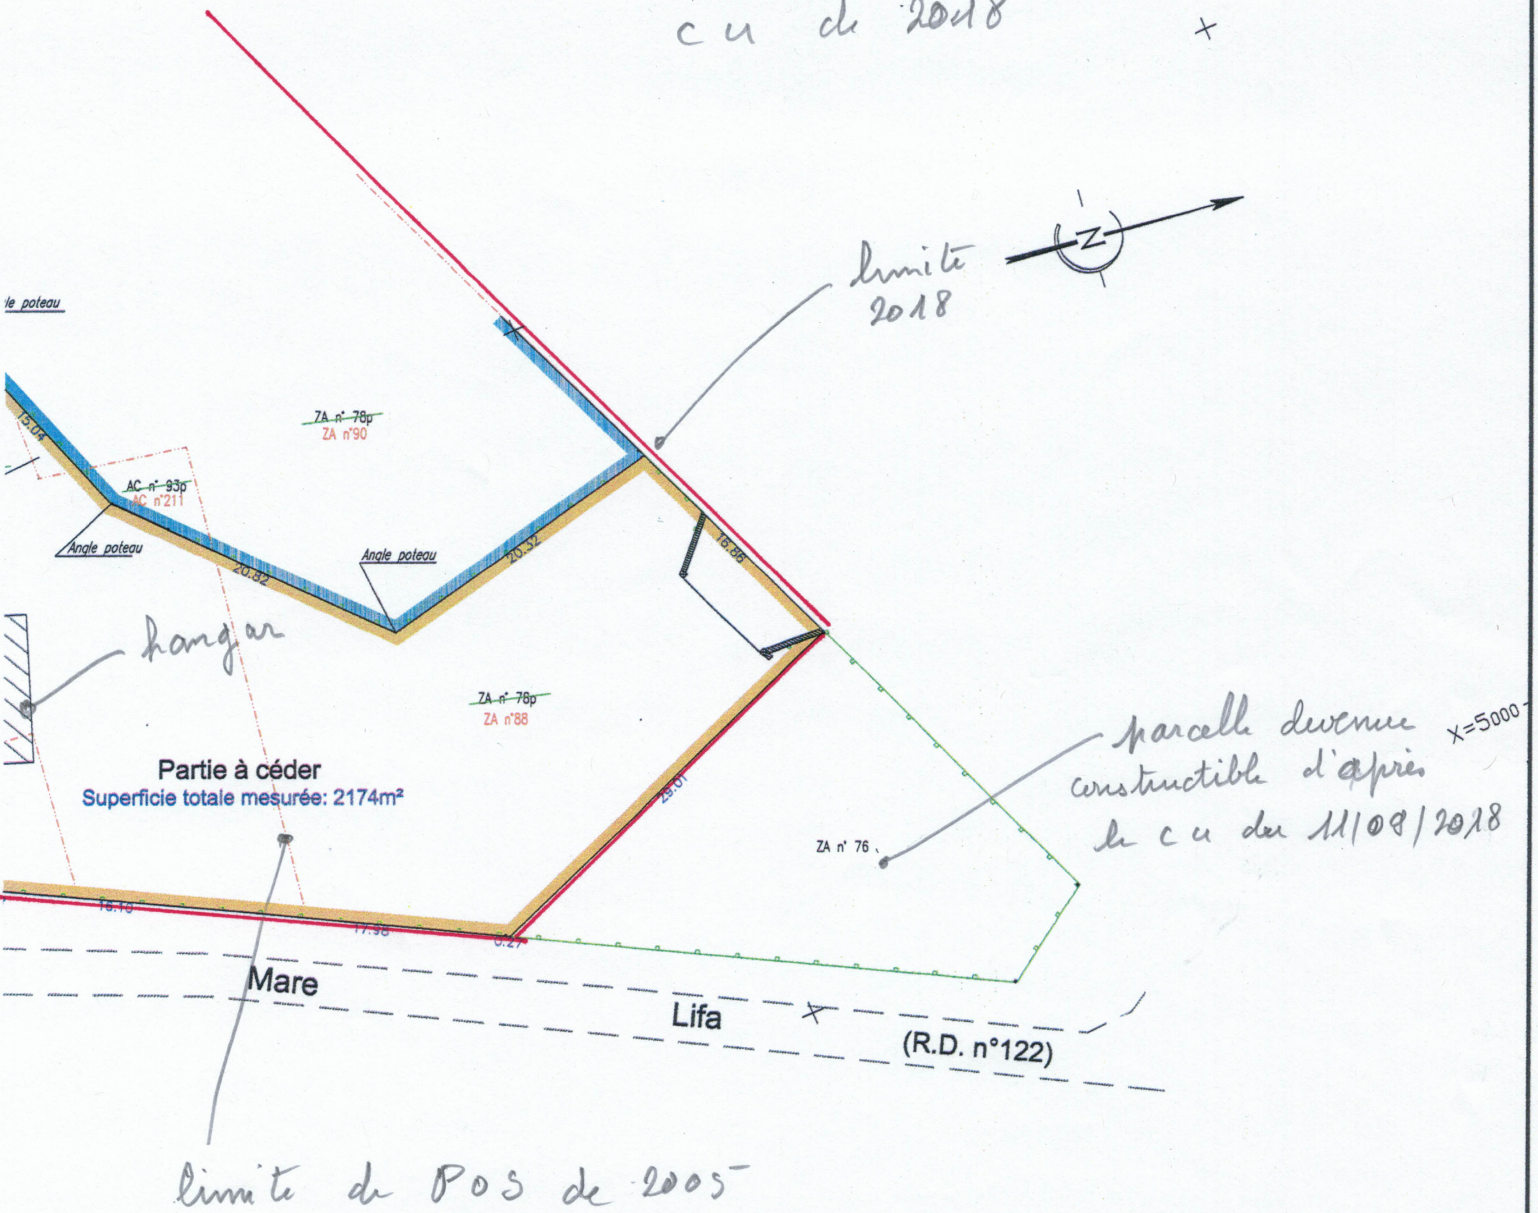 cu de 2018
limite
2018
le poteau
ZA n° 78p
ZA n°90
15.04
AC n° 93p
AC n°211
Angle poteau
Angle poteau
20.82
20.32
16.86
hangar
ZA n° 78p
ZA n°88
Partie à céder
Superficie totale mesurée: 2174m²
29.61
parcelle devenue
constructible d'après
le cu du 11/09/2018
X=5000
ZA n° 76
16.10
17.98
0.27
Mare
Lifa
(R.D. n°122)
limite de POS de 2005
N